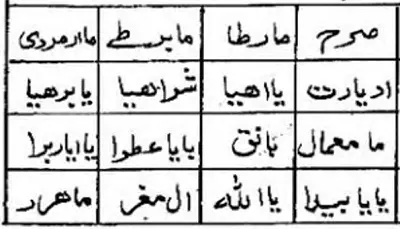 صرح مارطا مابرطے ماارمردی
ادیارت یااھیا شراھیا یابرھیا
مامعمال بانق یایاعطوا یاایاربرا
یایابیدا یااللّٰه ال مغر ماھررد